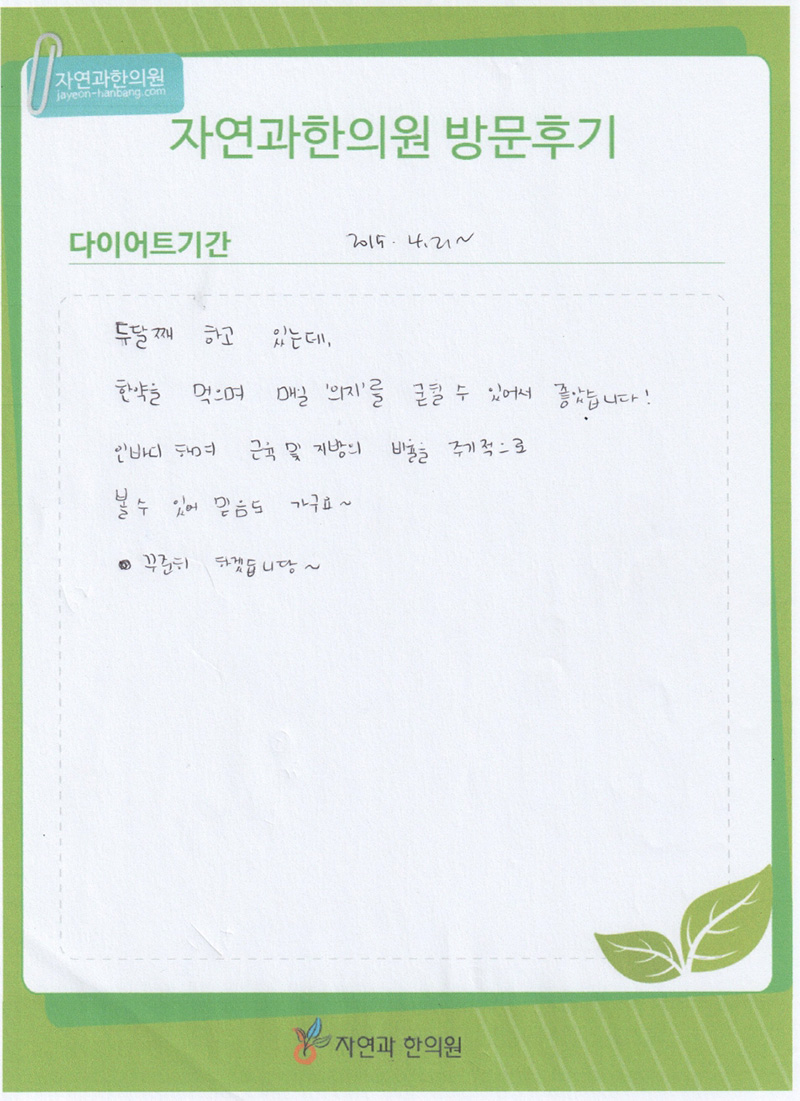 자연과한의원
jayeon-hanbang.com
자연과한의원 방문후기
다이어트기간 2015. 4. 21~
두달째 하고 있는데,
한약을 먹으며 매일 '의지'를 굳힐 수 있어서 좋았습니다!
인바디 하며 근육 및 지방의 비율을 주기적으로
볼 수 있어 믿음도 가구요~
꾸준히 하겠습니당~
자연과 한의원